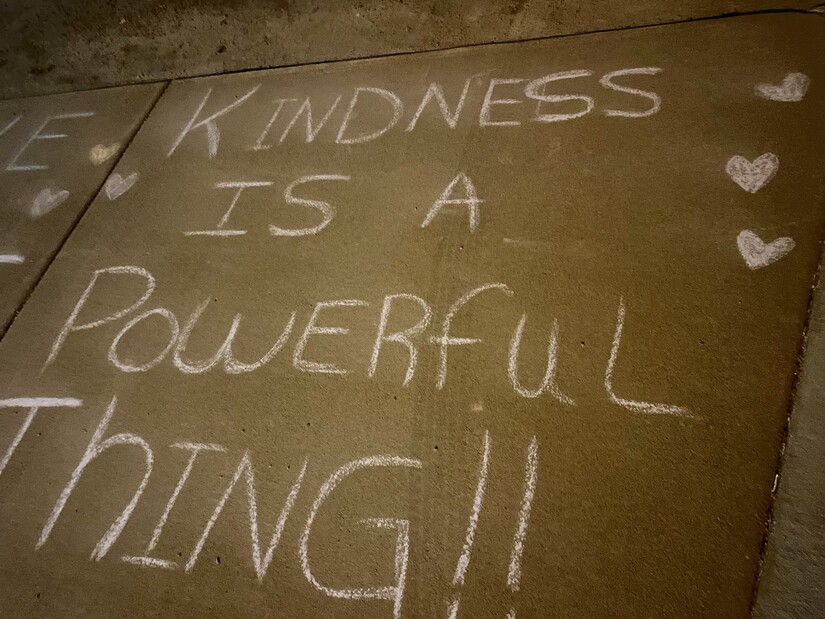 KINDNESS
IS A
POWERfuL
ThING!!